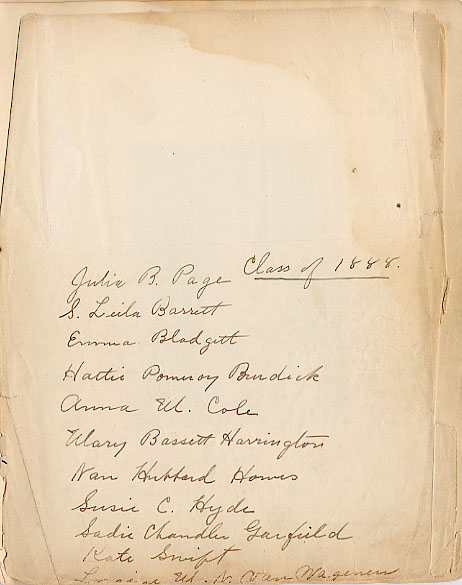 Class of 1888.
Julia B. Page
S. Leila Barrett
Emma Blodgett
Hattie Pomeroy Burdick
Anna M. Cole
Mary Bassett Harrington
Nan Hubbard Howes
Susie C. Hyde
Sadie Chandler Garfield
Kate Swift
M. N. Van Wagenen